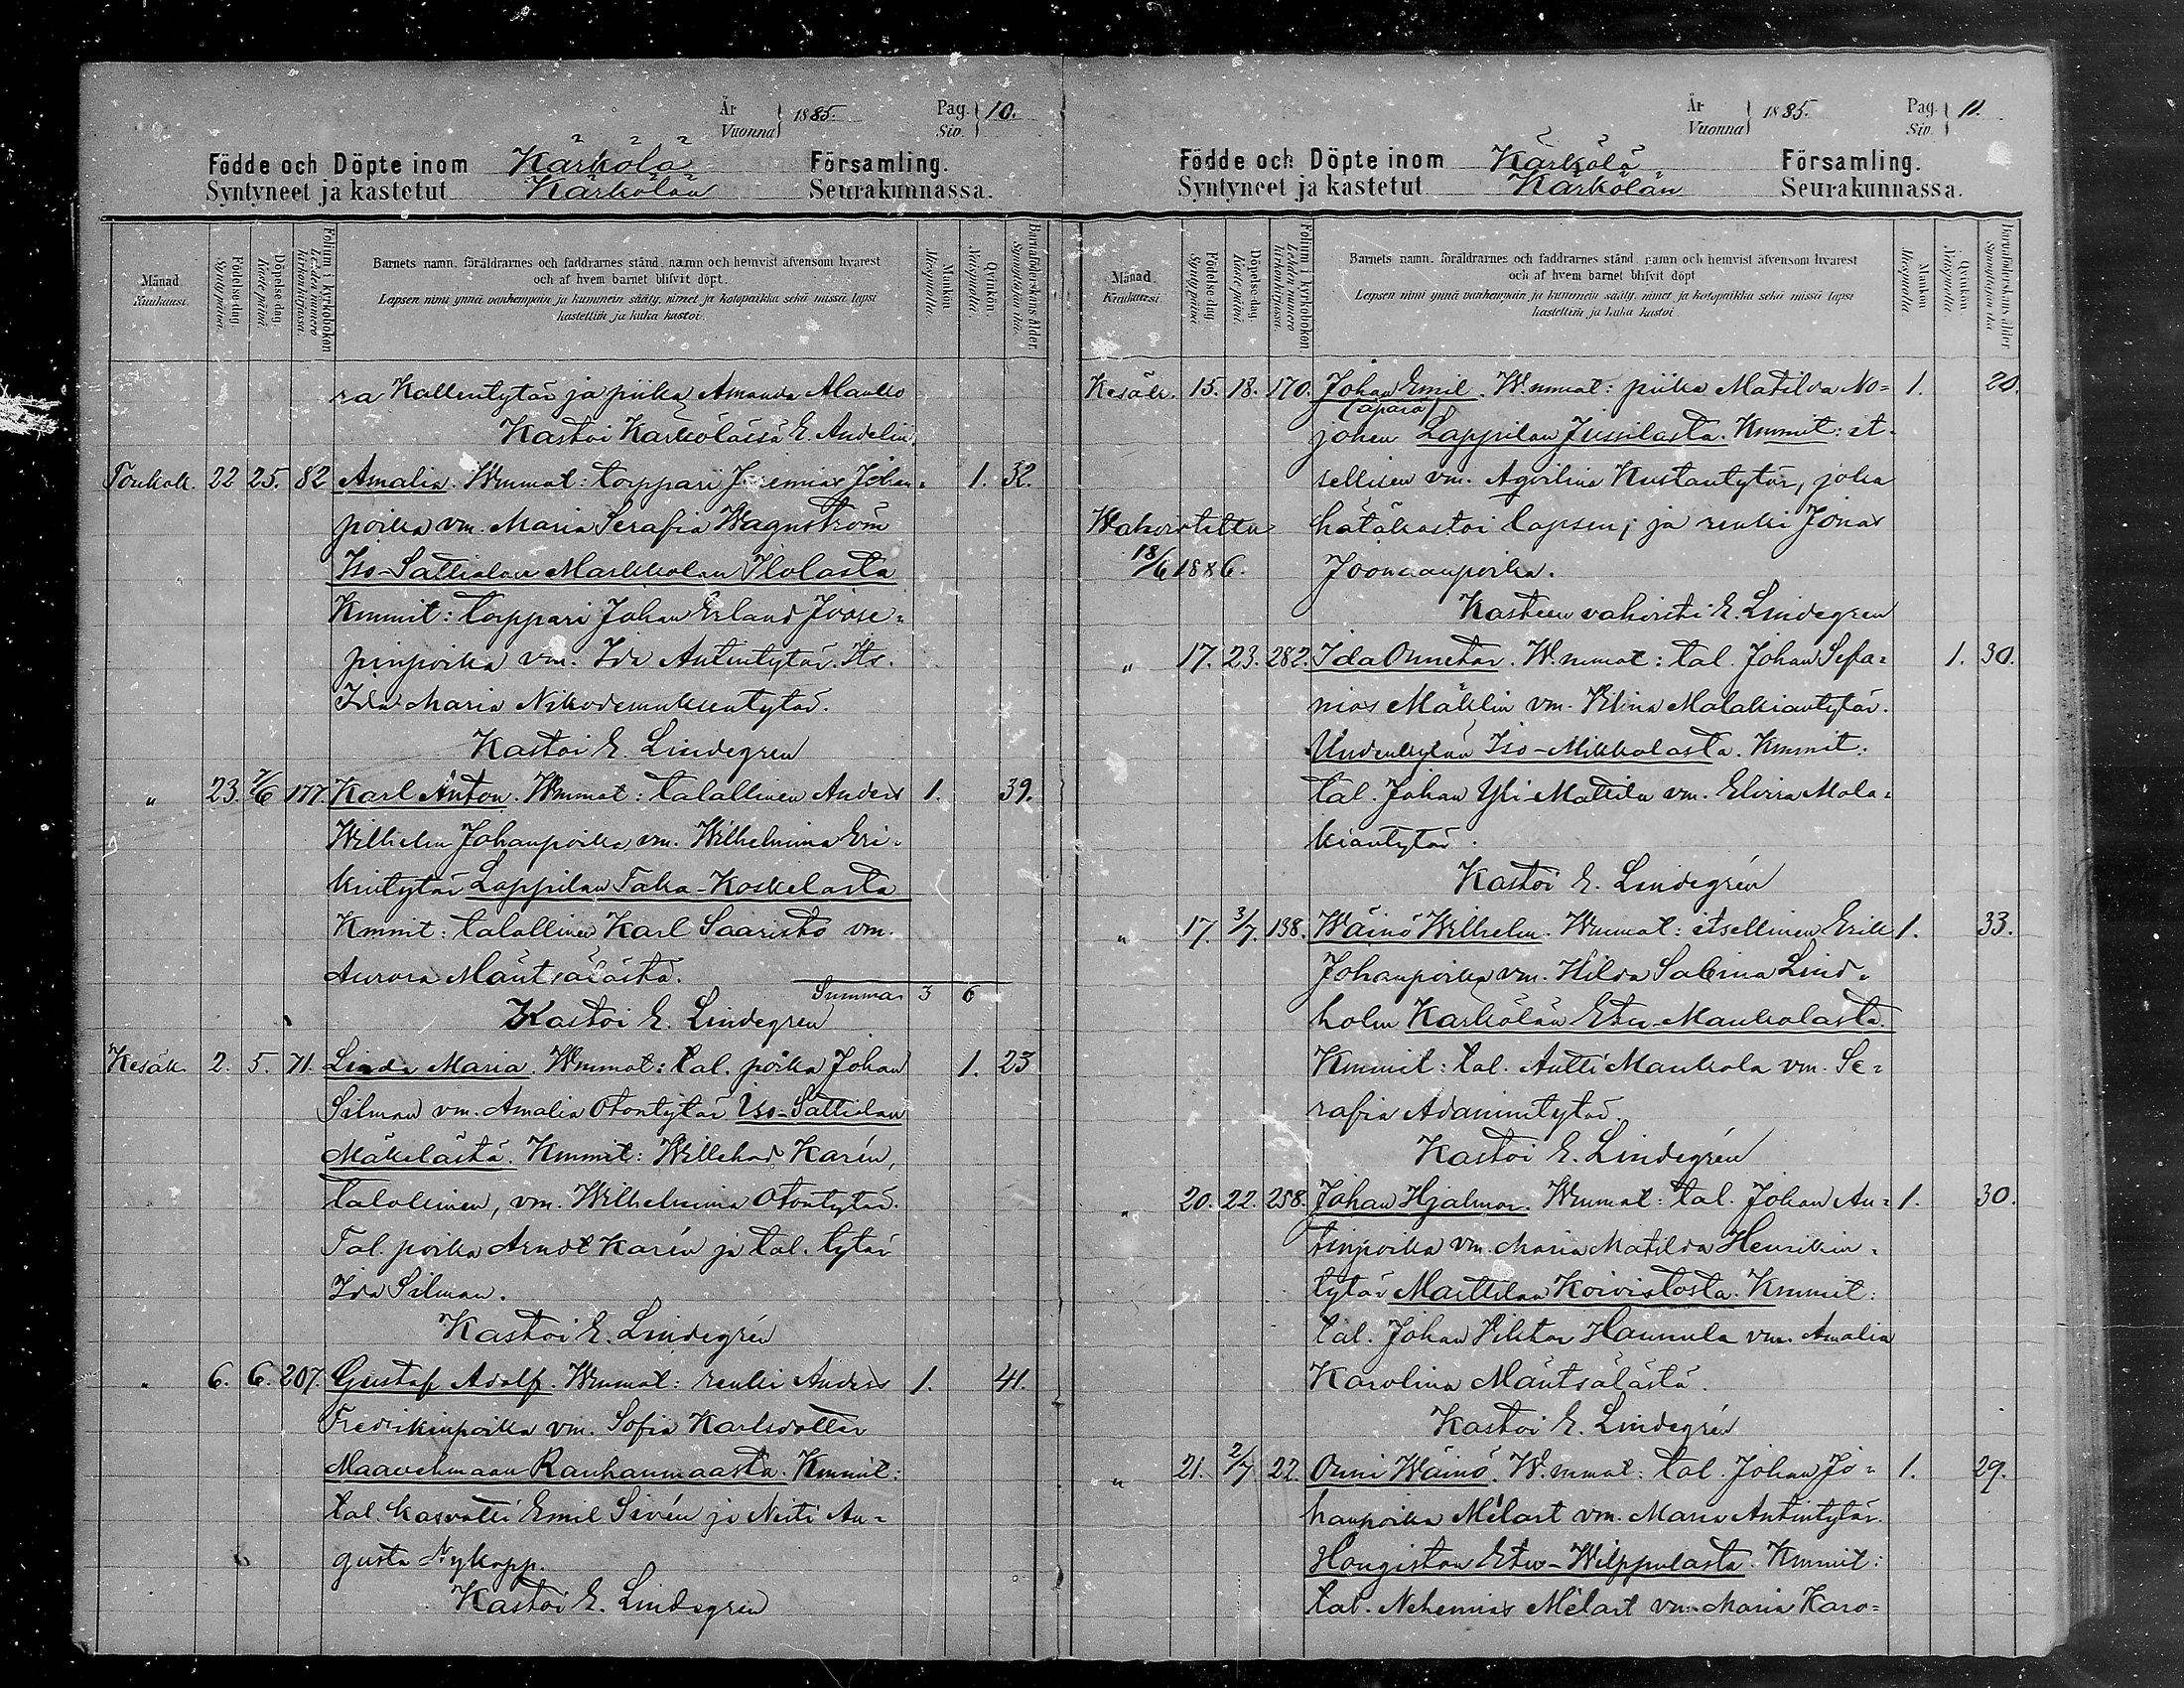 År
Vuonna } 1885. Pag.
Siv. } 10.
Födde och Döpte inom Kärkölä Församling.
Syntyneet ja kastetut Kärkölän Seurakunnassa.
Månad
Kuukausi.
Födelse-dag.
Synty-päivä.
Döpelse-dag.
Kaste-päivä.
Folium i kyrkoboken
Lehden numero kirkonkirjassa.
Barnets namn, föräldrarnes och faddrarnes stånd, namn och hemvist äfvensom hvarest
och af hvem barnet blifvit döpt.
Lapsen nimi ynnä vanhempain ja kummein sääty, nimet ja kotopaikka sekä missä lapsi
kastettiin ja kuka kastoi.
Mankön
Miespuolta.
Qvinkön.
Naispuolta.
Barnaföderskans ålder.
Synnyttäjän ikä.
ra Kallentytär ja piika Amanda Alanko
Kastoi Kärkölässä E. Andelin
Toukok. 22 25. 82 Amalia. Wmmat: torppari Jeremias Johan- 1. 32.
poika vm. Maria Serafia Wagnström
Iso-Sattialan Markkolan Ilolasta
Kmmit: torppari Johan Erland Joose-
pinpoika vm. Ida Antintytär. Its.
Ida Maria Nikodemuksentytär.
Kastoi E. Lindegren
" 23. 7/6 177. Karl Anton. Wmmat: talallinen Anders 1. 39.
Wilhelm Johanpoika vm. Wilhelmina Eri-
kintytär Lappilan Taka-Koskelasta
Kmmit: talallinen Karl Saaristo vm.
Aurora Mäntsälästä.
Summa 3 6
Kastoi E. Lindegren
Kesäk. 2. 5. 71. Linda Maria. Wmmat: tal. poika Johan 1. 23
Silman vm. Amalia Otontytär Iso-Sattialan
Mäkelästä. Kmmit: Willehad Karén,
talollinen, vm. Wilhelmina Otontytär.
Tal. poika Arndt Karén ja tal. tytär
Ida Silman.
Kastoi E. Lindegrén
" 6. 6. 207. Gustaf Adolf. Wmmat: renki Anders 1. 41.
Fredrikinpoika vm. Sofia Karlsdotter
Maavehmaan Rauhanmaasta. Kmmit:
tal. kasvatti Emil Sivén ja Neiti Au-
gusta Nykopp.
Kastoi E. Lindegren
År
Vuonna } 1885. Pag.
Siv. } 11.
Födde och Döpte inom Kärkölä Församling.
Syntyneet ja kastetut Kärkölän Seurakunnassa.
Månad
Kuukausi
Födelse-dag.
Synty-päivä.
Döpelse-dag.
Kaste-päivä.
Folium i kyrkoboken
Lehden numero kirkonkirjassa.
Barnets namn, föräldrarnes och faddrarnes stånd, namn och hemvist äfvensom hvarest
och af hvem barnet blifvit döpt
Lapsen nimi ynnä vanhempain ja kummein sääty, nimet ja kotopaikka sekä missä lapsi
kastettiin ja kuka kastoi
Mankön
Miespuolta.
Qvinkön
Naispuolta
Barnaföderskans ålder
Synnyttäjän ikä
Kesäk. 15. 18. 170. Johan Emil. W.mmat: piika Matilda No- 1. 20.
(äpärä)
johen Lappilan Jussilasta. Kmmit: it-
sellisen vm. Kustantytär, joka
Wahvistettu hätäkastoi lapsen; ja renki Jonas
18/6 1886. Joonaanpoika.
Kasteen vahvisti E. Lindegren
" 17. 23. 282. Ida Onnetar. W.mmat: tal. Johan Sefa- 1. 30.
nias Mäklin vm. Vilina Malakiantytär.
Uudenkylän Iso-Mikkolasta. Kmmit:
tal. Johan Yli-Mattila vm. Elvira Mala-
kiantytär.
Kastoi E. Lindegrén
" 17. 3/7. 138. Wäinö Wilhelm. Wmmat: itsellinen Erik 1. 33.
Johanpoika vm. Hilda Sabina Lind-
holm Kärkölän Etu-Maukolasta.
Kmmit: tal. Antti Maukola vm. Se-
rafia Adamintytär.
Kastoi E. Lindegrén
" 20. 22. 258. Johan Hjalmar. Wmmat: tal. Johan An- 1. 30.
tinpoika vm. Maria Matilda Henrikin-
tytär Marttilan Koivistosta. Kmmit:
tal. Johan Viktor Hannula vm. Amalia
Karolina Mäntsälästä.
Kastoi E. Lindegrén
" 21. 2/7 22. Onni Wäinö. W.mmat: tal. Johan Jo- 1. 29.
hanpoika Mélart vm. Maria Antintytär.
Hongiston Etu-Wilppulasta. Kmmit:
tal. Nehemias Mélart vm. Maria Karo-